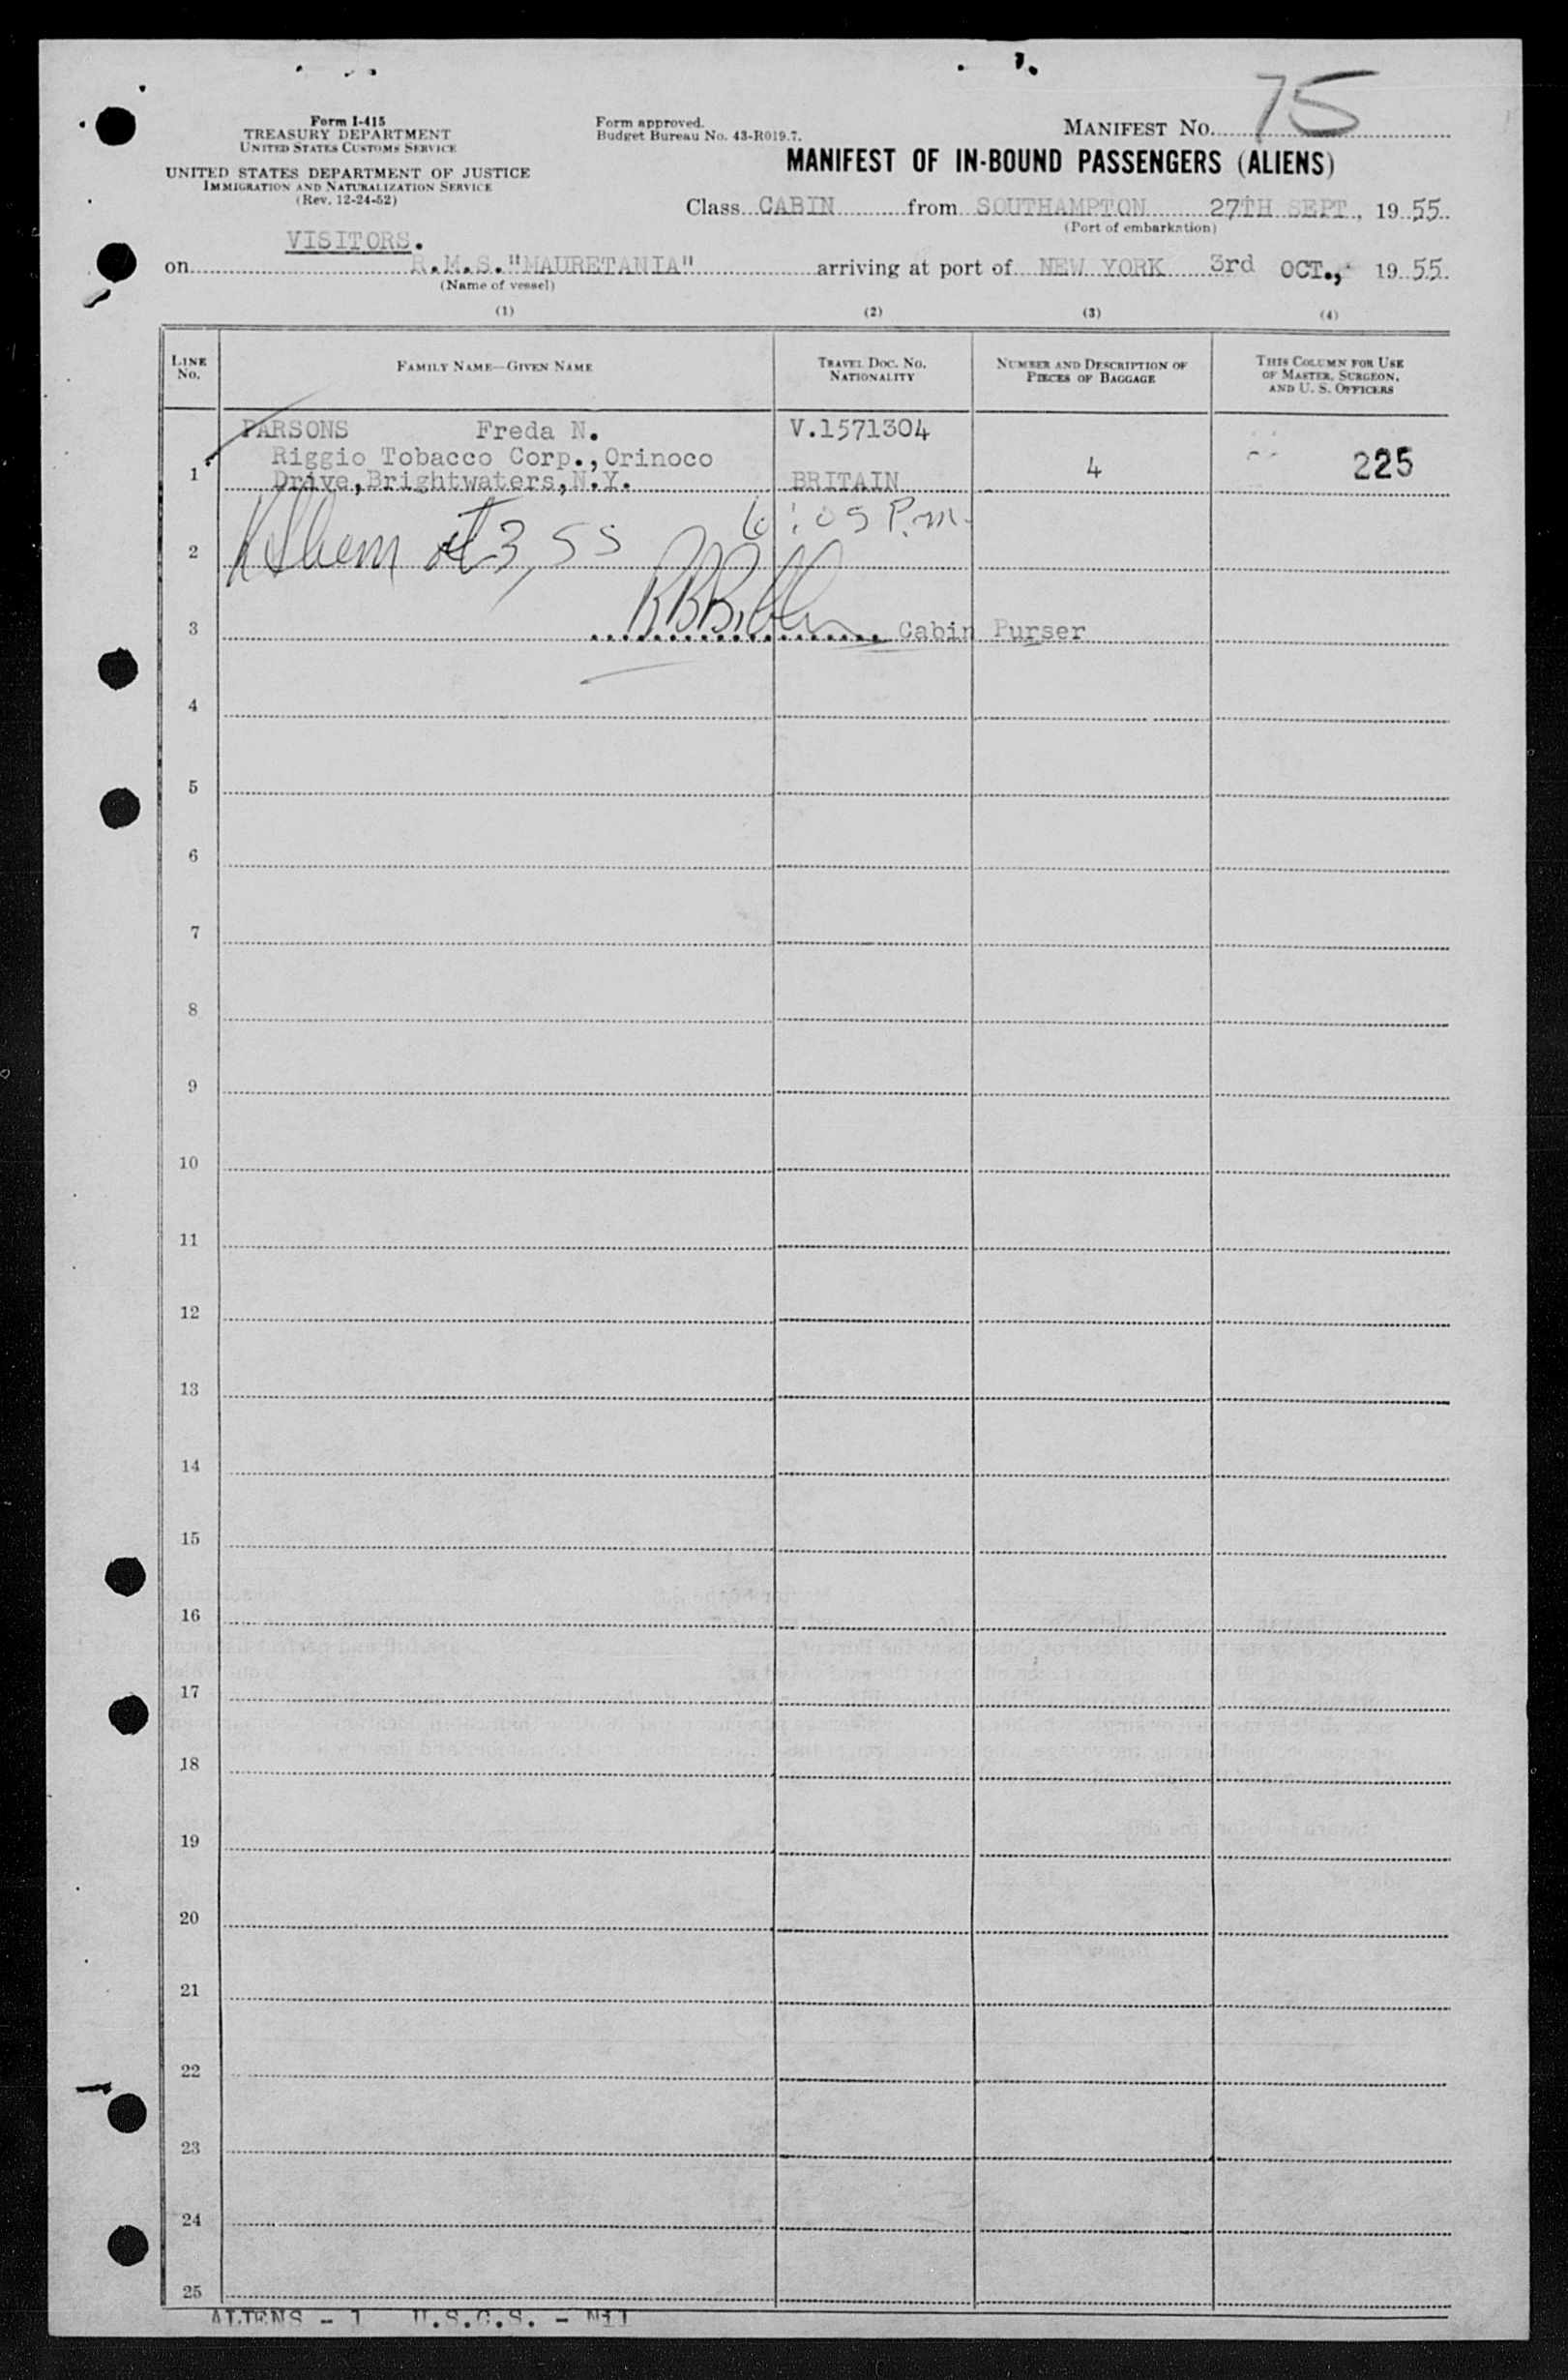 Form I-415
TREASURY DEPARTMENT
UNITED STATES CUSTOMS SERVICE
UNITED STATES DEPARTMENT OF JUSTICE
IMMIGRATION AND NATURALIZATION SERVICE
(Rev. 12-24-52)
Form approved.
Budget Bureau No. 43-R019.7.
MANIFEST No. 75
MANIFEST OF IN-BOUND PASSENGERS (ALIENS)
Class CABIN from SOUTHAMPTON 27TH SEPT., 1955
(Port of embarkation)
VISITORS.
on R.M.S."MAURETANIA" arriving at port of NEW YORK 3rd OCT., 1955
(Name of vessel)
(1) (2) (3) (4)
LINE No. FAMILY NAME—GIVEN NAME TRAVEL DOC. No. NATIONALITY NUMBER AND DESCRIPTION OF PIECES OF BAGGAGE THIS COLUMN FOR USE OF MASTER, SURGEON, AND U. S. OFFICERS
PARSONS Freda N. V.1571304
Riggio Tobacco Corp.,Orinoco
1 Drive,Brightwaters,N.Y. BRITAIN 4 225
6:05 P.m.
2 3, 55
3 Cabin Purser
4
5
6
7
8
9
10
11
12
13
14
15
16
17
18
19
20
21
22
23
24
25
ALIENS - 1 U.S.C.S. - Nil